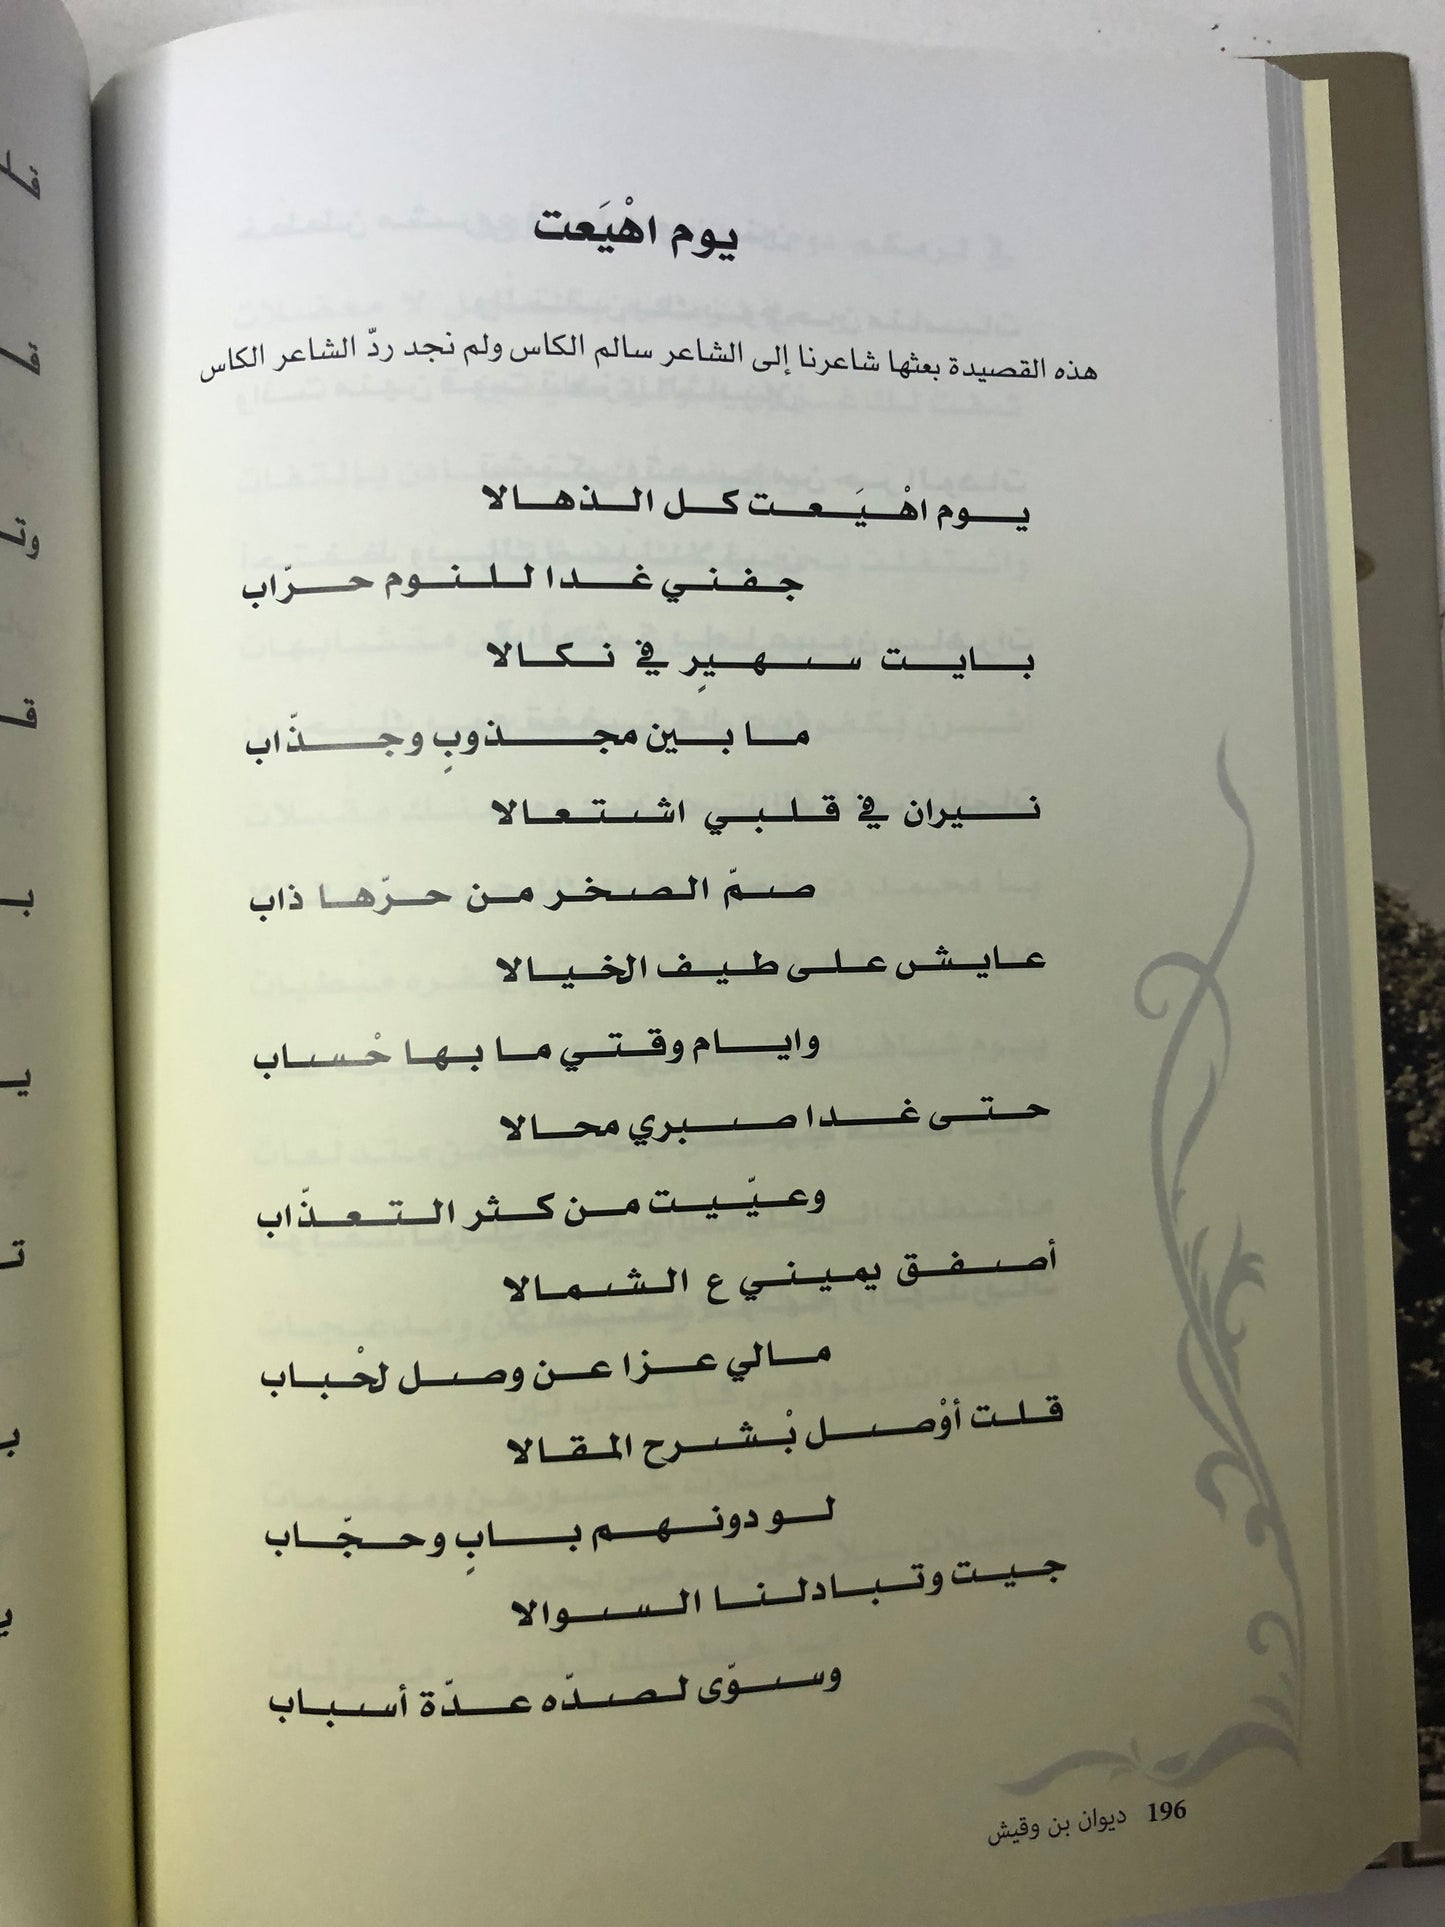 يوم اهْيَعت
هذه القصيدة بعثها شاعرنا إلى الشاعر سالم الكاس ولم نجد ردّ الشاعر الكاس
يوم اهْيَعت كل الذهالا
جفني غدا للنوم حرّاب
بايت سهيرٍ في نكالا
ما بين مجذوبٍ وجذّاب
نيران في قلبي اشتعالا
صمّ الصخر من حرّها ذاب
عايش على طيف الخيالا
وايام وقتي ما بها حْساب
حتى غدا صبري محالا
وعيّيت من كثر التعذّاب
أصفق يميني ع الشمالا
مالي عزا عن وصل لحْباب
قلت أوْصل بْشرح المقالا
لو دونهم بابٍ وحجّاب
جيت وتبادلنا السوالا
وسوّى لصدّه عدّة أسباب
196 ديوان بن وقيش